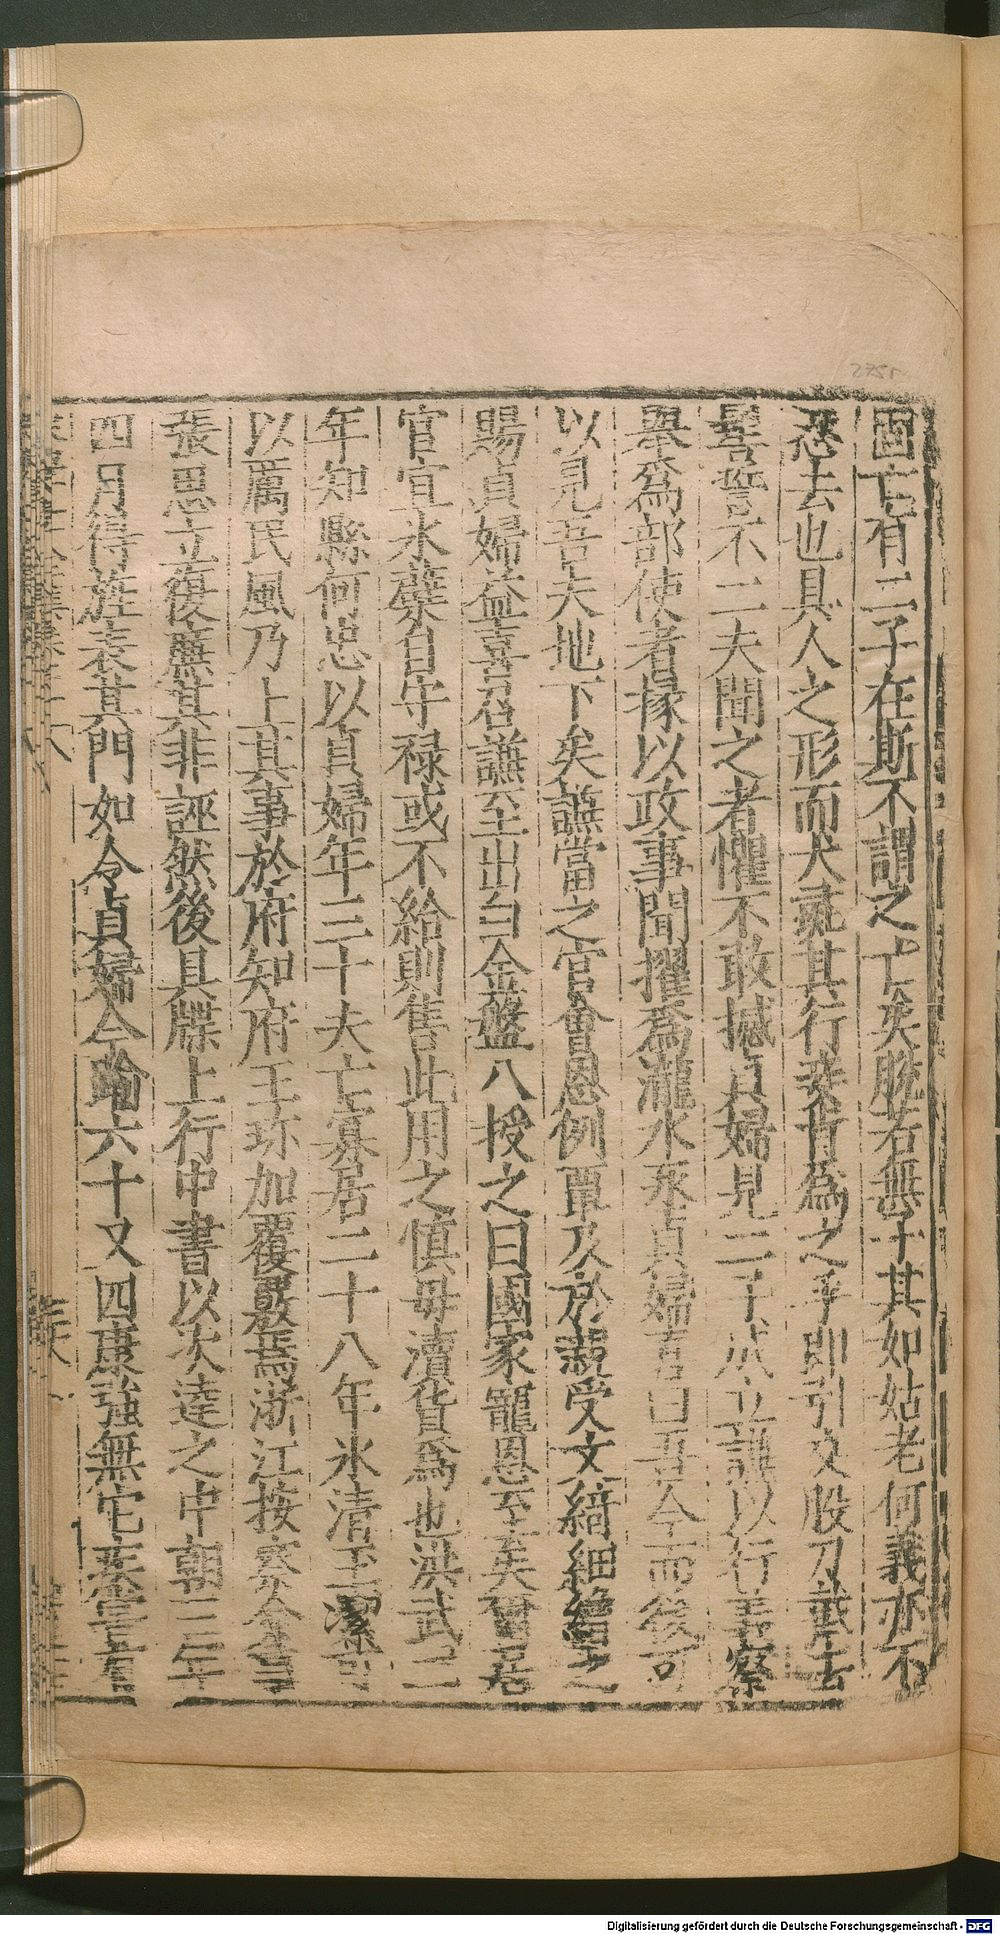 固亡有二子在斯不謂之亡矣脫若無子其如姑老何義亦不
忍去也具人之形而犬彘其行妾肯為之乎即引交股刀截去
髻誓不二夫聞之者懼不敢撼貞婦見二子成立謙以行義察
舉為部使者掾以政事聞擢為瀧水丞貞婦喜曰吾今而後可
以見吾夫地下矣謙當之官會恩例覃及於親受文綺細繒之
賜貞婦益喜召謙至出白金盤八授之曰國家寵恩至矣爾居
官宜氷蘗自守祿或不給則售此用之慎毋瀆貨為也洪武二
年知縣何忠以貞婦年三十夫亡寡居二十八年氷清玉潔可
以厲民風乃上其事於府知府王珎加覆覈焉浙江按察僉事
張思立復廉其非誣然後具牒上行中書以次達之中朝三年
四月得旌表其門如令貞婦今踰六十又四康強無它疾
Digitalisierung gefördert durch die Deutsche Forschungsgemeinschaft - DFG